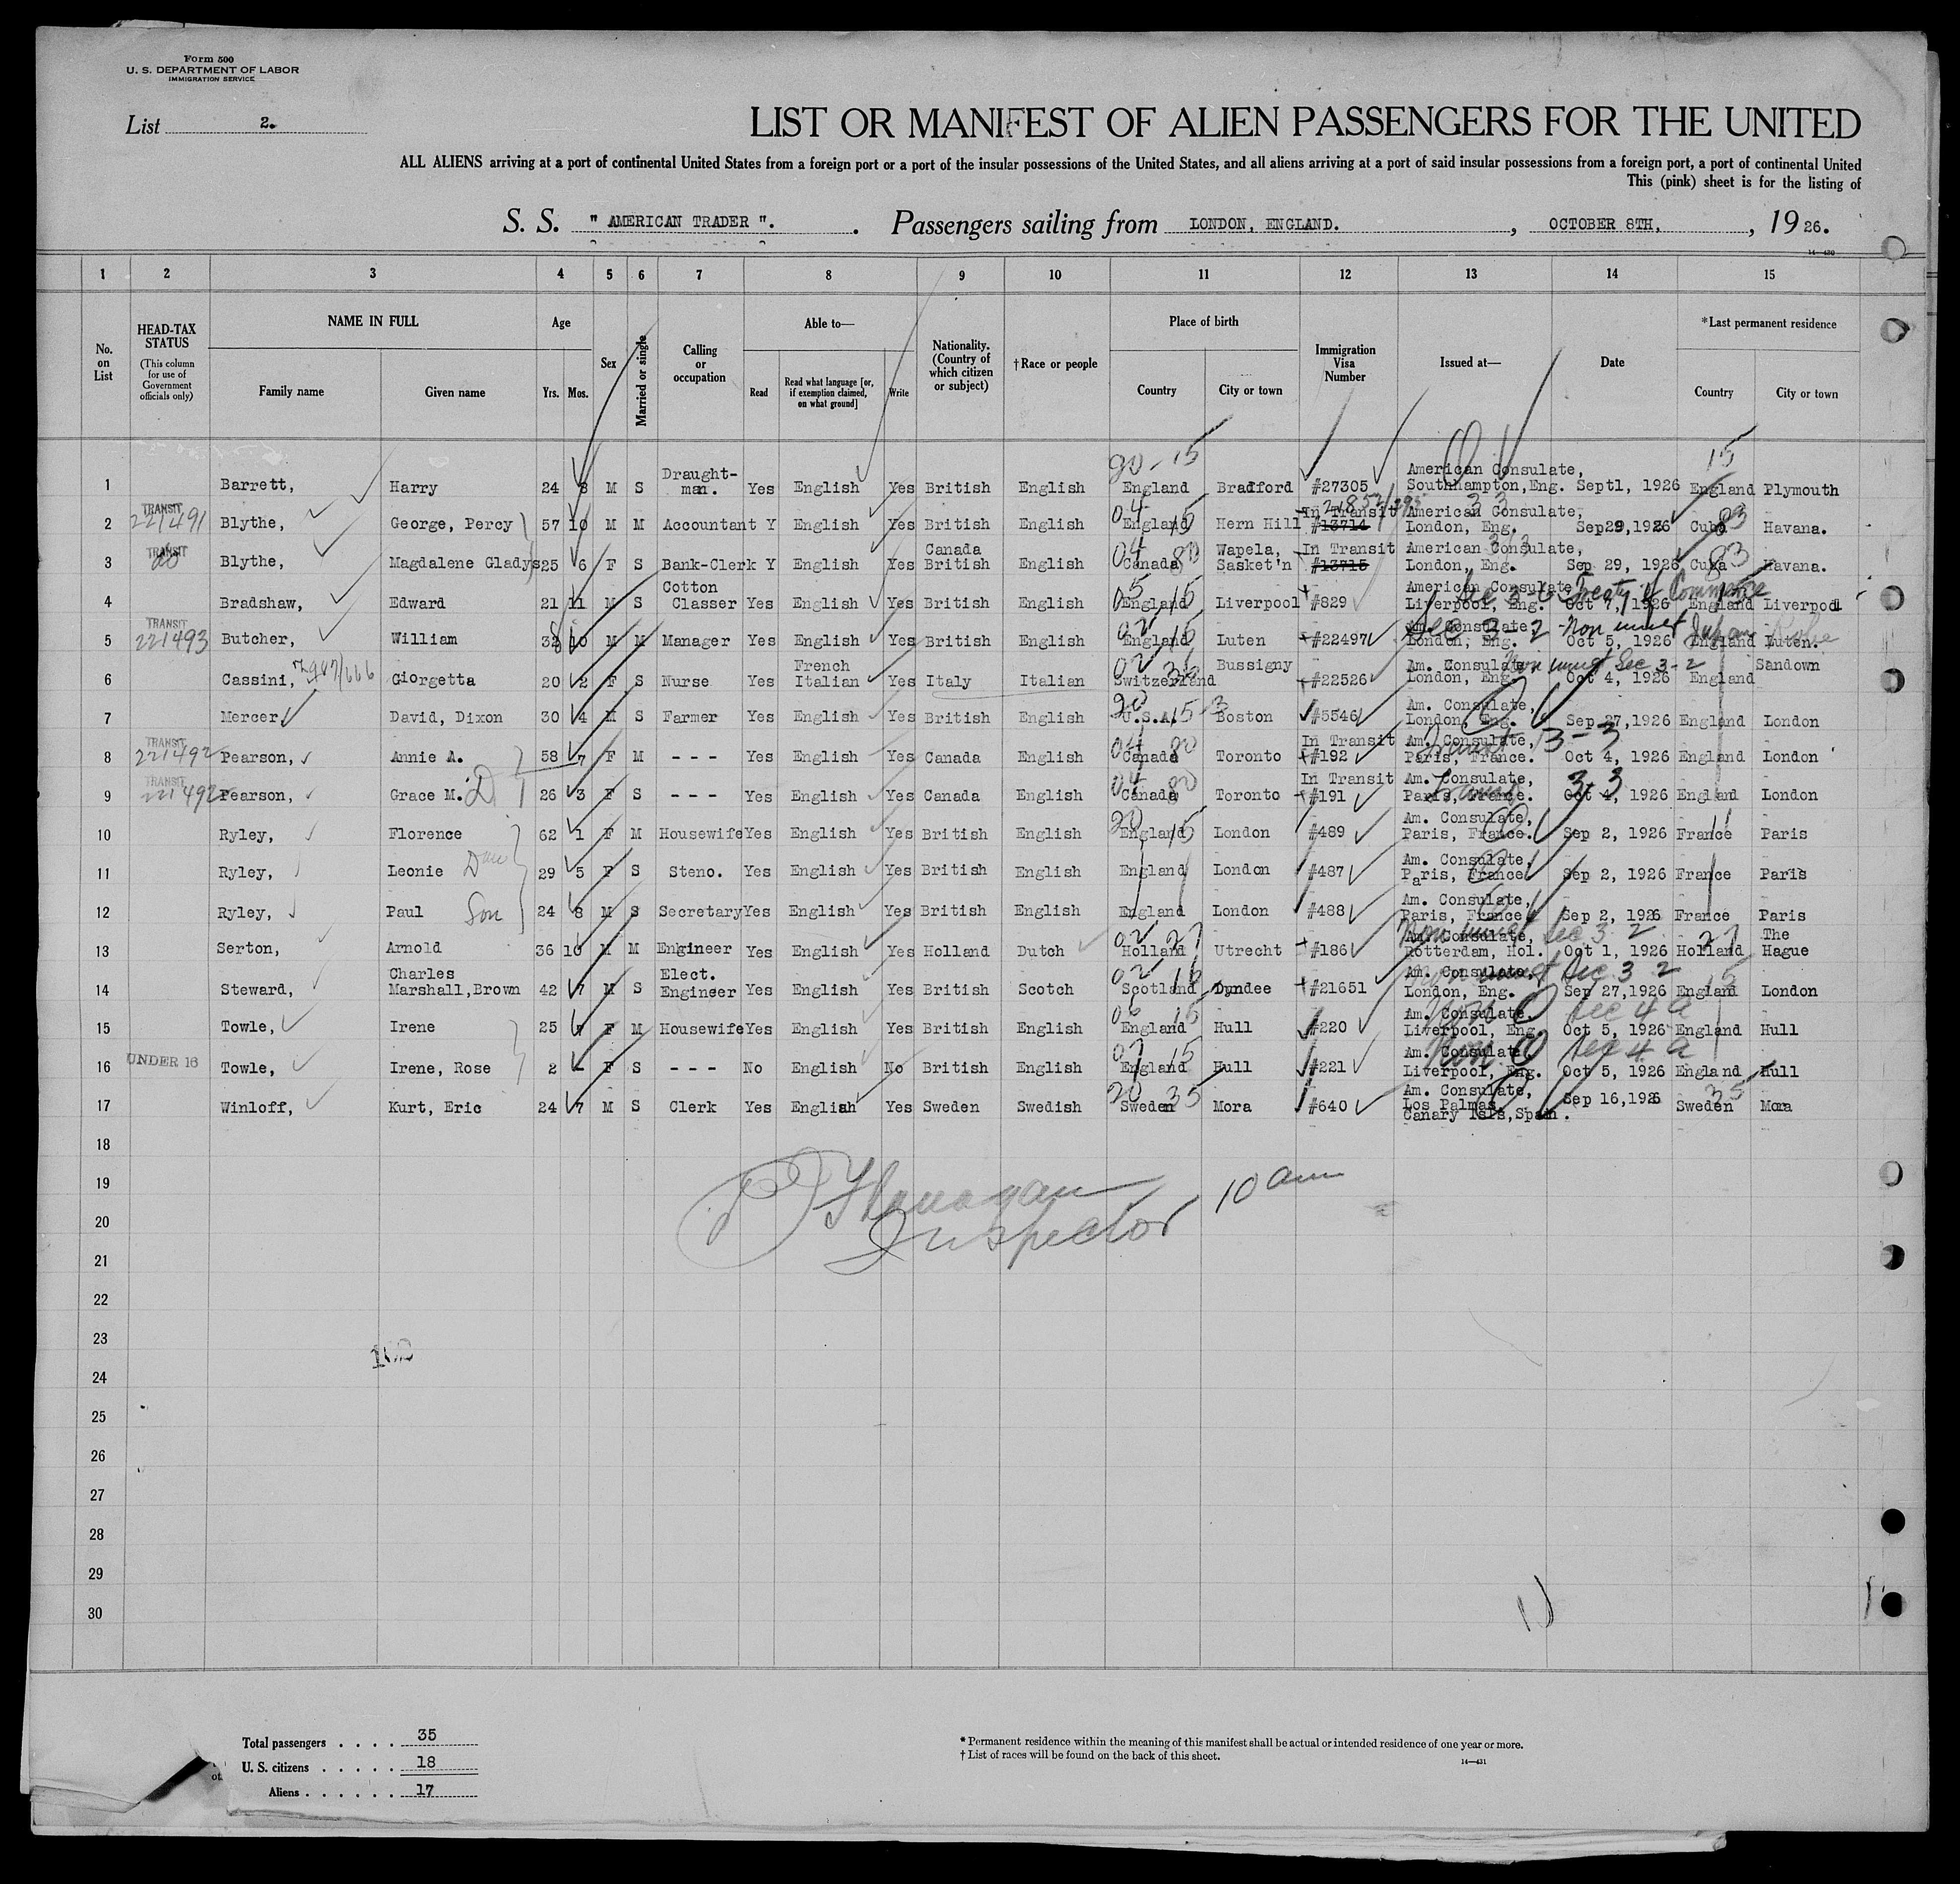 Form 500
U. S. DEPARTMENT OF LABOR
IMMIGRATION SERVICE
List 2.
LIST OR MANIFEST OF ALIEN PASSENGERS FOR THE UNITED
ALL ALIENS arriving at a port of continental United States from a foreign port or a port of the insular possessions of the United States, and all aliens arriving at a port of said insular possessions from a foreign port, a port of continental United
This (pink) sheet is for the listing of
S. S. " AMERICAN TRADER ". Passengers sailing from LONDON, ENGLAND. , OCTOBER 8TH. , 19 26.
14—430
1 2 3 4 5 6 7 8 9 10 11 12 13 14 15
No. on List
HEAD-TAX STATUS (This column for use of Government officials only)
NAME IN FULL Family name Given name
Age Yrs. Mos.
Sex
Married or single
Calling or occupation
Able to— Read Read what language [or, if exemption claimed, on what ground] Write
Nationality. (Country of which citizen or subject)
†Race or people
Place of birth Country City or town
Immigration Visa Number
Issued at—
Date
*Last permanent residence Country City or town
1 Barrett, Harry 24 8 M S Draught-man. Yes English Yes British English England Bradford #27305 American Consulate, Southhampton,Eng. Sept1, 1926 England Plymouth
2 TRANSIT 221491 Blythe, George, Percy 57 10 M M Accountant Y English Yes British English England Hern Hill In Transit #13714 American Consulate, London, Eng. Sep29,1926 Cuba Havana.
3 TRANSIT do Blythe, Magdalene Gladys 25 6 F S Bank-Clerk Y English Yes Canada British English Canada Wapela, Sasket'n In Transit #13715 American Consulate, London, Eng. Sep 29, 1926 Cuba Havana.
4 Bradshaw, Edward 21 11 M S Cotton Classer Yes English Yes British English England Liverpool #829 American Consulate, Liverpool, Eng. Oct 7, 1926 England Liverpool Sec 3-6 Treaty of Commerce
5 TRANSIT 221493 Butcher, William 32 10 M M Manager Yes English Yes British English England Luten #22497 Am. Consulate, London, Eng. Oct 5, 1926 England Luten. Sec 3-2 Non immgt Japan Kobe
6 Cassini, Giorgetta 20 2 F S Nurse Yes French Italian Yes Italy Italian Switzerland Bussigny #22526 Am. Consulate, London, Eng. Oct 4, 1926 England Sandown Non immgt Sec 3-2
7 Mercer, David, Dixon 30 4 M S Farmer Yes English Yes British English U.S.A. Boston #5546 Am. Consulate, London, Eng. Sep 27,1926 England London
8 TRANSIT 221492 Pearson, Annie A. 58 7 F M - - - Yes English Yes Canada English Canada Toronto In Transit #192 Am. Consulate, Paris, France. Oct 4, 1926 England London Transit 3-3
9 TRANSIT 221492 Pearson, Grace M. D 26 3 F S - - - Yes English Yes Canada English Canada Toronto In Transit #191 Am. Consulate, Paris, France. Oct 4, 1926 England London Transit 3 3
10 Ryley, Florence 62 1 F M Housewife Yes English Yes British English England London #489 Am. Consulate, Paris, France. Sep 2, 1926 France Paris
11 Ryley, Leonie Dau 29 5 F S Steno. Yes English Yes British English England London #487 Am. Consulate, Paris, France Sep 2, 1926 France Paris
12 Ryley, Paul Son 24 8 M S Secretary Yes English Yes British English England London #488 Am. Consulate, Paris, France Sep 2, 1926 France Paris
13 Serton, Arnold 36 10 M M Engineer Yes English Yes Holland Dutch Holland Utrecht #186 Am. Consulate, Rotterdam, Hol. Oct 1, 1926 Holland The Hague Non immgt Sec 3 2
14 Steward, Charles Marshall,Brown 42 7 M S Elect. Engineer Yes English Yes British Scotch Scotland Dundee #21651 Am. Consulate, London, Eng. Sep 27,1926 England London Sec 3 2
15 Towle, Irene 25 7 F M Housewife Yes English Yes British English England Hull #220 Am. Consulate, Liverpool, Eng. Oct 5, 1926 England Hull Non Q Sec 4 a
16 UNDER 16 Towle, Irene, Rose 2 - F S - - - No English No British English England Hull #221 Am. Consulate, Liverpool, Eng. Oct 5, 1926 England Hull Non Q Sec 4 a
17 Winloff, Kurt, Eric 24 7 M S Clerk Yes English Yes Sweden Swedish Sweden Mora #640 Am. Consulate, Los Palmas, Canary Isls,Spain. Sep 16,1926 Sweden Mora
18
19
Flanagan 10 am
20
Inspector
21
22
23
24
25
26
27
28
29
30
Total passengers . . . . 35
U. S. citizens . . . . . 18
Aliens . . . . . . 17
* Permanent residence within the meaning of this manifest shall be actual or intended residence of one year or more.
† List of races will be found on the back of this sheet.
14—431